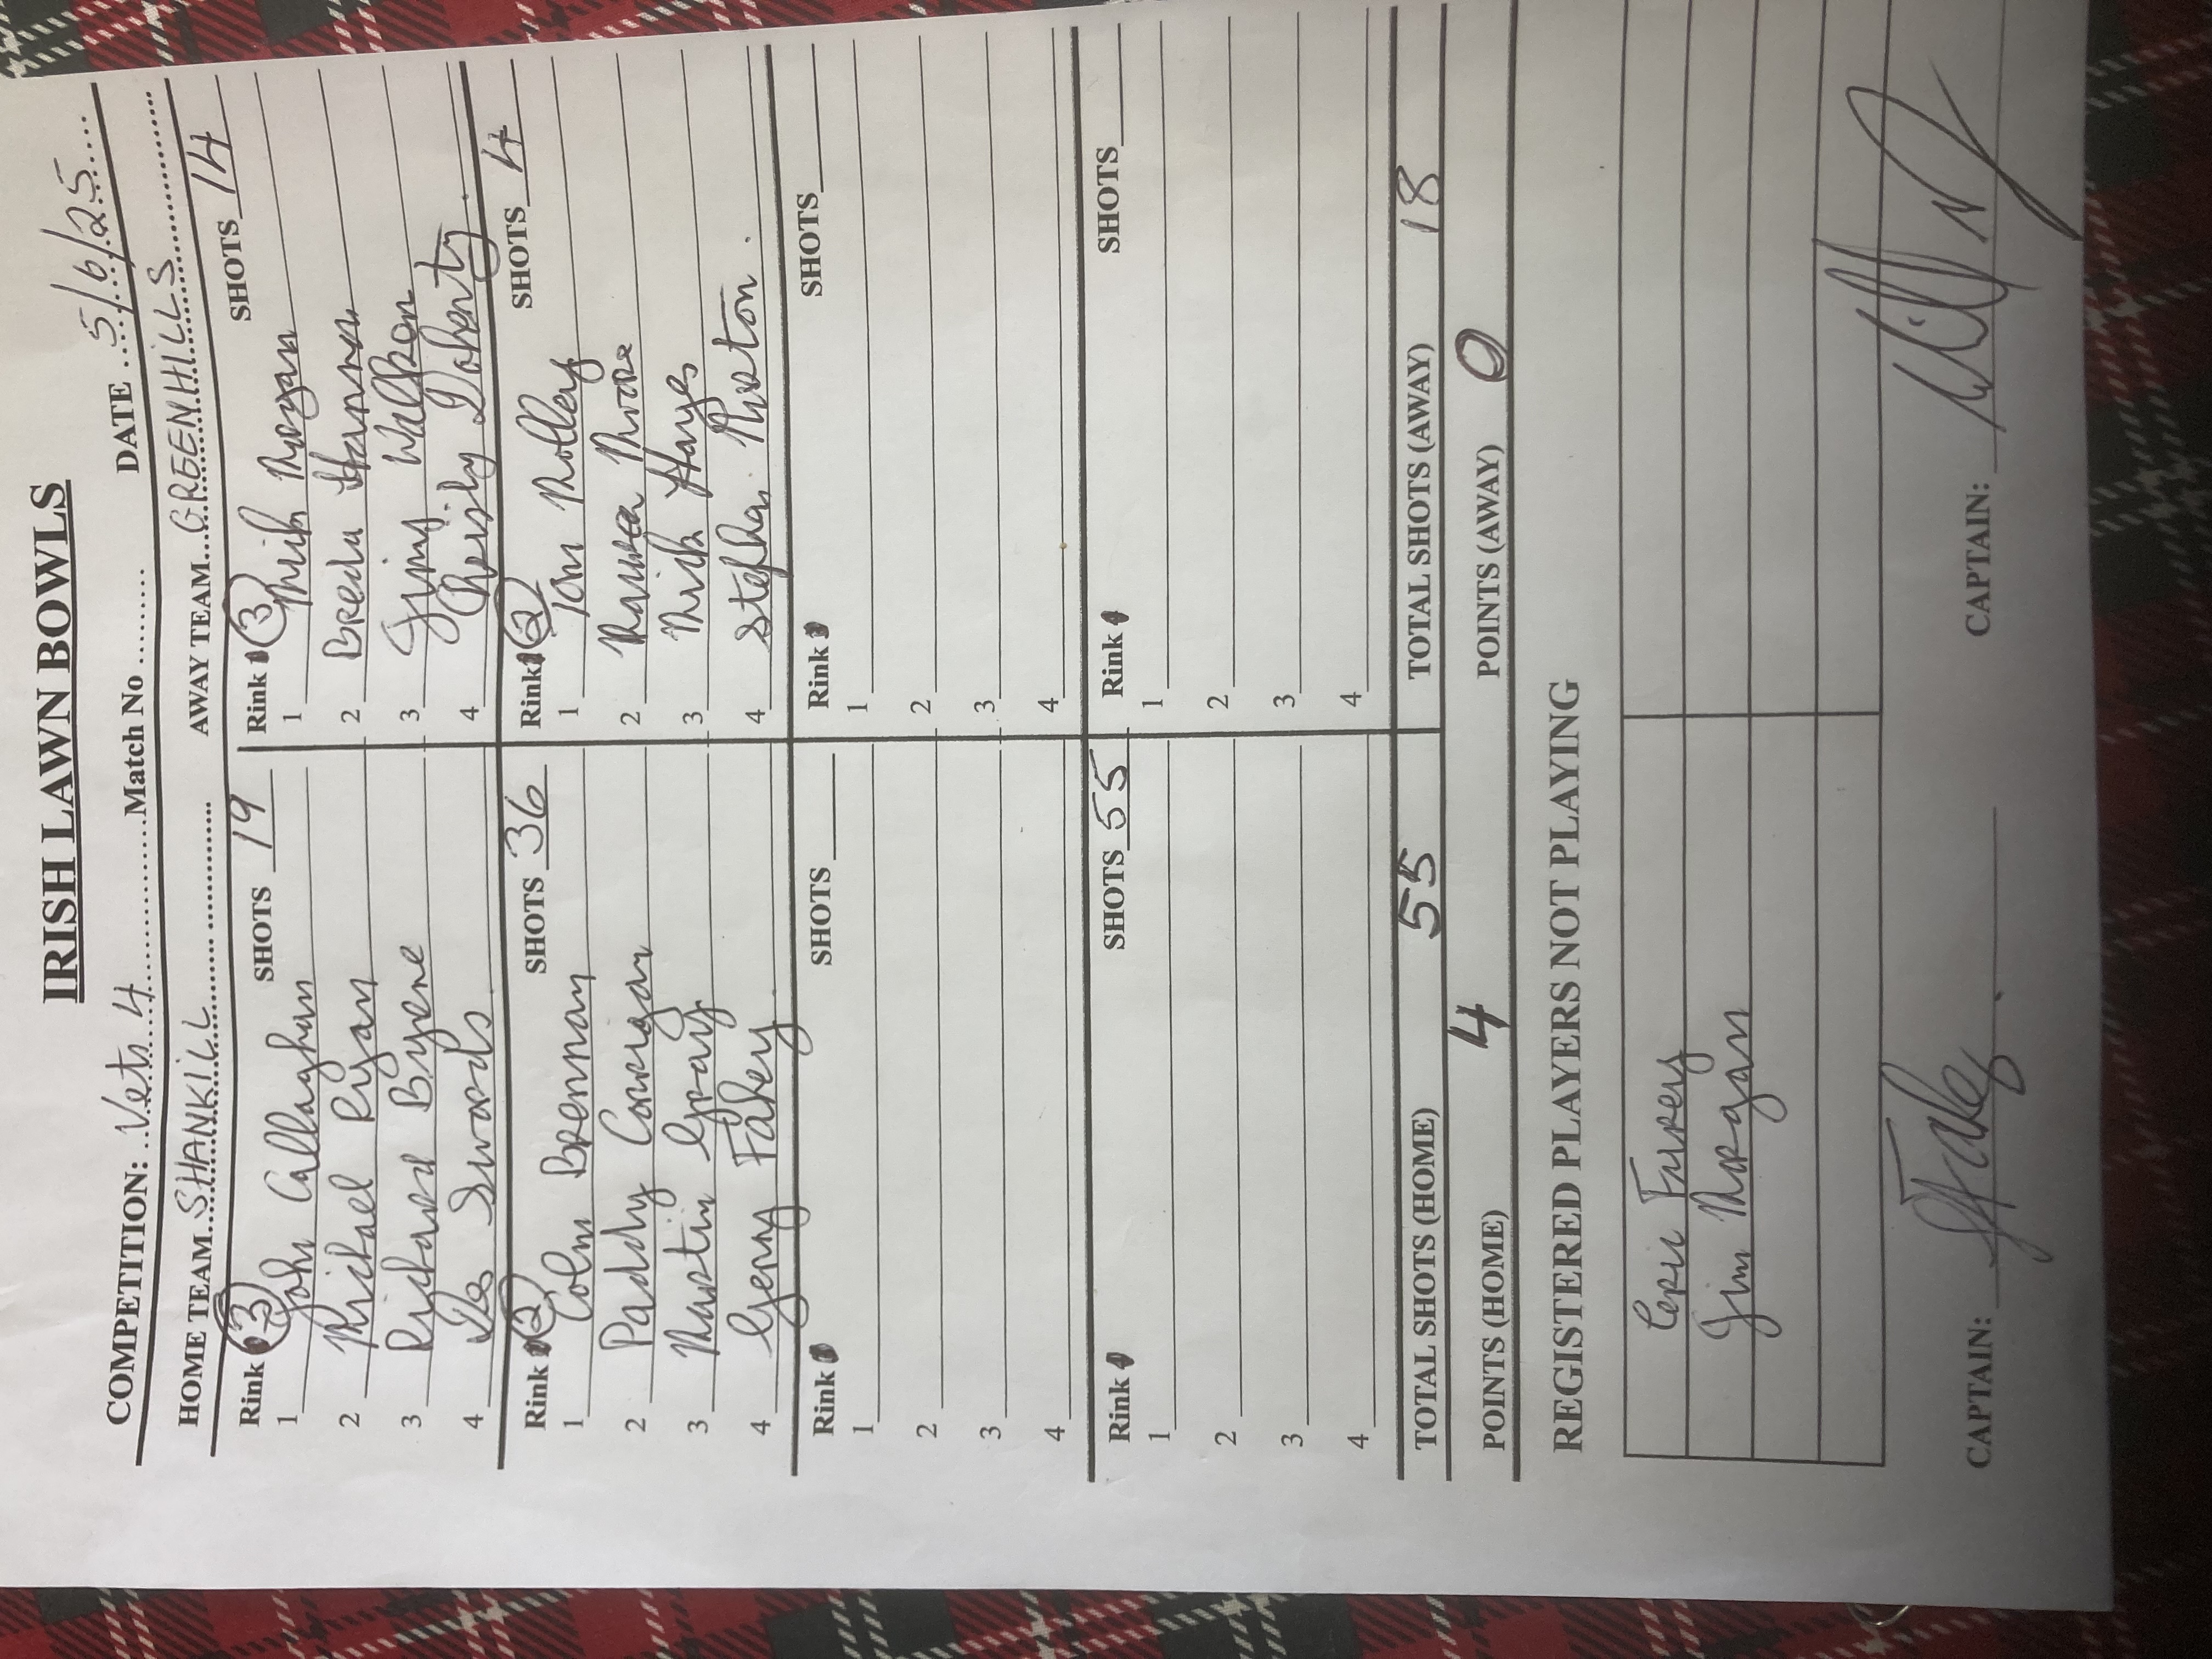 IRISH LAWN BOWLS
COMPETITION: Vets 4 Match No DATE 5/6/25
HOME TEAM SHANKILL AWAY TEAM GREENHILLS
Rink 3 SHOTS 19 Rink 3 SHOTS 14
1 John Callaghan 1 Mick Morgan
2 Michael Ryan 2 Breda Hanna
3 Richard Byrne 3 Jimmy
4 Des Swords 4 Christy Doherty
Rink 2 SHOTS 36 Rink 2 SHOTS 4
1 Colm Brennan 1 Tom
2 Paddy Corrigan 2 Moore
3 Martin Gray 3 Mick Hayes
4 Gerry Fahey 4
Rink SHOTS Rink SHOTS
1 1
2 2
3 3
4 4
Rink SHOTS 55 Rink SHOTS
1 1
2 2
3 3
4 4
TOTAL SHOTS (HOME) 55 TOTAL SHOTS (AWAY) 18
POINTS (HOME) 4 POINTS (AWAY) 0
REGISTERED PLAYERS NOT PLAYING
Jim Morgan
CAPTAIN: CAPTAIN: